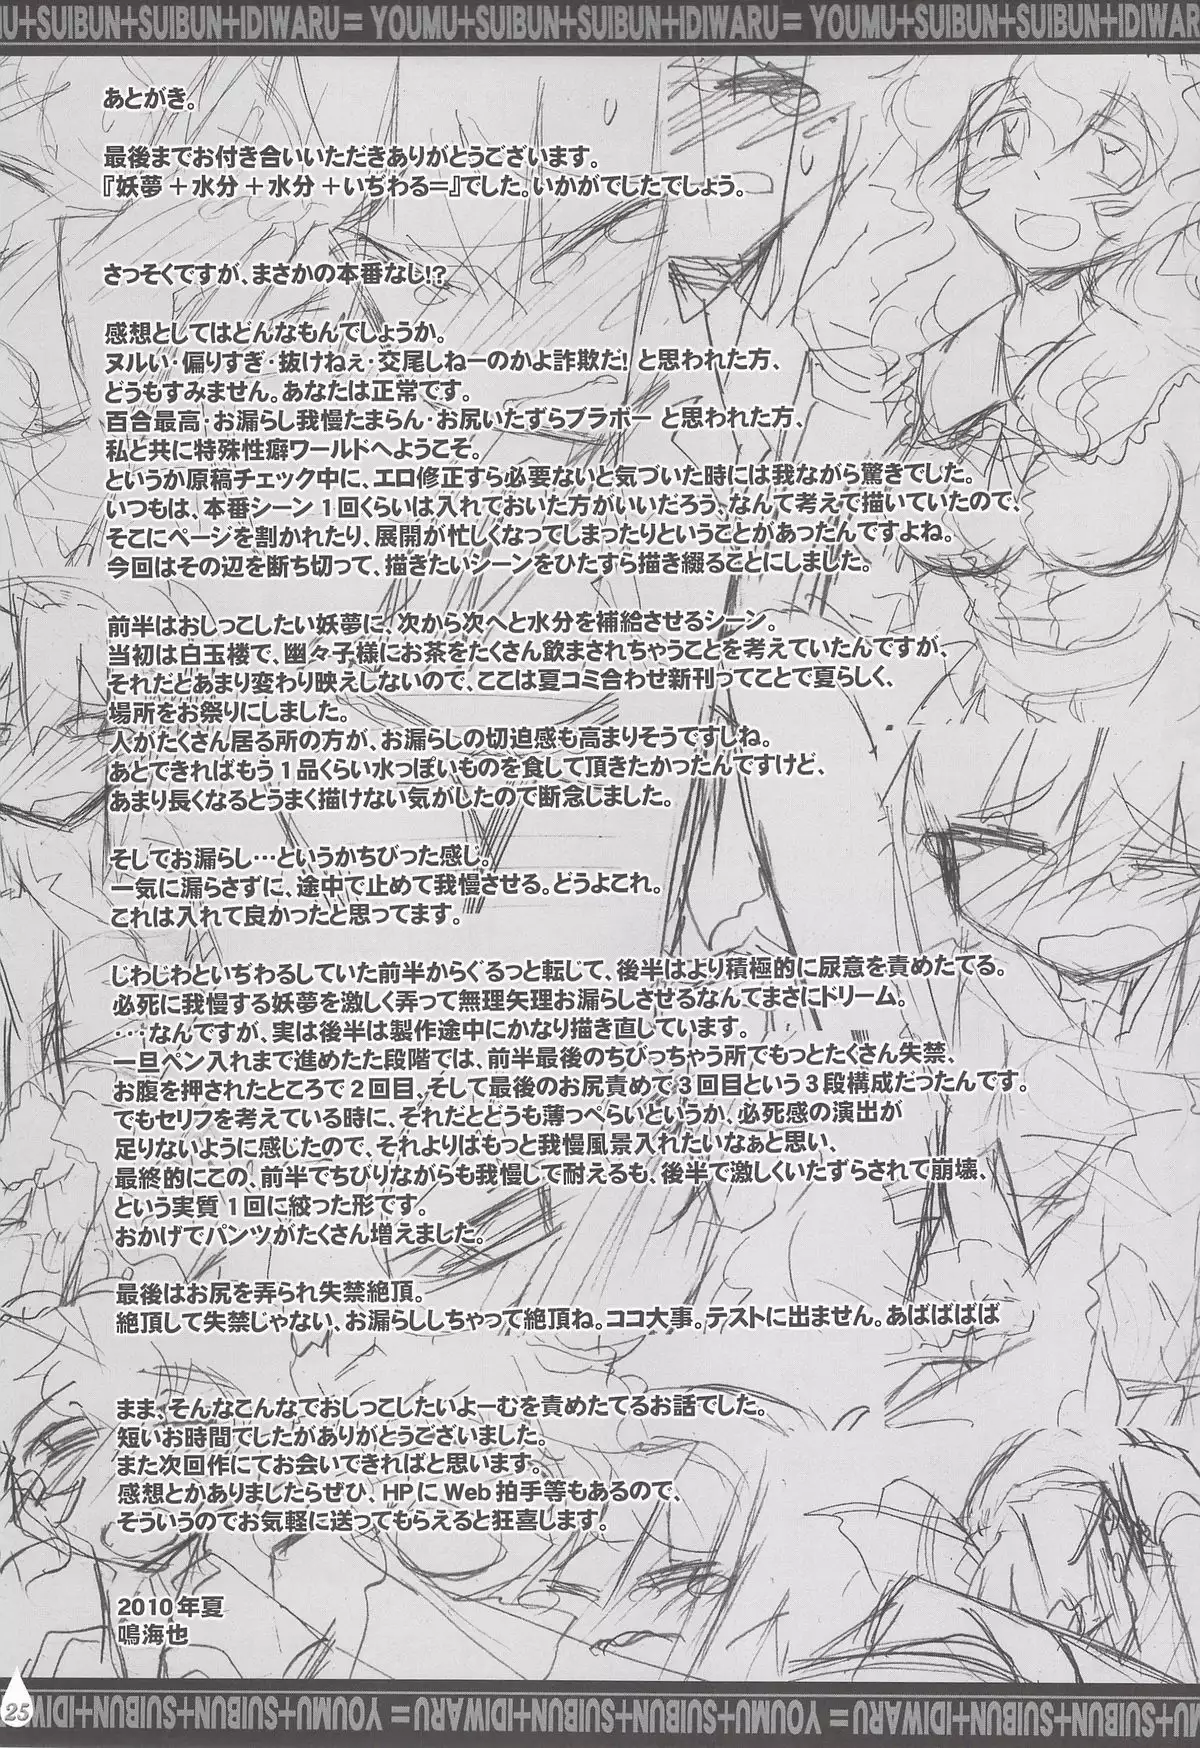 MU+SUIBUN+SUIBUN+IDIWARU= YOUMU+SUIBUN+SUIBUN+IDIWARU= YOUMU+SUIBUN+SUIBUN+IDIWARU
あとがき。
最後までお付き合いいただきありがとうございます。
『妖夢＋水分＋水分＋いぢわる＝』でした。いかがでしたでしょう。
さっそくですが、まさかの本番なし!?
感想としてはどんなもんでしょうか。
ヌルい・偏りすぎ・抜けねぇ・交尾しねーのかよ詐欺だ! と思われた方、
どうもすみません。あなたは正常です。
百合最高・お漏らし我慢たまらん・お尻いたずらブラボー と思われた方、
私と共に特殊性癖ワールドへようこそ。
というか原稿チェック中に、エロ修正すら必要ないと気づいた時には我ながら驚きでした。
いつもは、本番シーン１回くらいは入れておいた方がいいだろう、なんて考えで描いていたので、
そこにページを割かれたり、展開が忙しくなってしまったりということがあったんですよね。
今回はその辺を断ち切って、描きたいシーンをひたすら描き綴ることにしました。
前半はおしっこしたい妖夢に、次から次へと水分を補給させるシーン。
当初は白玉楼で、幽々子様にお茶をたくさん飲まされちゃうことを考えていたんですが、
それだとあまり変わり映えしないので、ここは夏コミ合わせ新刊ってことで夏らしく、
場所をお祭りにしました。
人がたくさん居る所の方が、お漏らしの切迫感も高まりそうですしね。
あとできればもう１品くらい水っぽいものを食して頂きたかったんですけど、
あまり長くなるとうまく描けない気がしたので断念しました。
そしてお漏らし…というかちびった感じ。
一気に漏らさずに、途中で止めて我慢させる。どうよこれ。
これは入れて良かったと思ってます。
じわじわといぢわるしていた前半からぐるっと転じて、後半はより積極的に尿意を責めたてる。
必死に我慢する妖夢を激しく弄って無理矢理お漏らしさせるなんてまさにドリーム。
…なんですが、実は後半は製作途中にかなり描き直しています。
一旦ペン入れまで進めたた段階では、前半最後のちびっちゃう所でもっとたくさん失禁、
お腹を押されたところで２回目、そして最後のお尻責めで３回目という３段構成だったんです。
でもセリフを考えている時に、それだとどうも薄っぺらいというか、必死感の演出が
足りないように感じたので、それよりはもっと我慢風景入れたいなぁと思い、
最終的にこの、前半でちびりながらも我慢して耐えるも、後半で激しくいたずらされて崩壊、
という実質１回に絞った形です。
おかげでパンツがたくさん増えました。
最後はお尻を弄られ失禁絶頂。
絶頂して失禁じゃない、お漏らししちゃって絶頂ね。ココ大事。テストに出ません。あばばばば
まま、そんなこんなでおしっこしたいよーむを責めたてるお話でした。
短いお時間でしたがありがとうございました。
また次回作にてお会いできればと思います。
感想とかありましたらぜひ、HPにWeb拍手等もあるので、
そういうのでお気軽に送ってもらえると狂喜します。
2010年夏
鳴海也
25
MU+SUIBUN+SUIBUN+IDIWARU= YOUMU+SUIBUN+SUIBUN+IDIWARU= YOUMU+SUIBUN+SUIBUN+IDIW